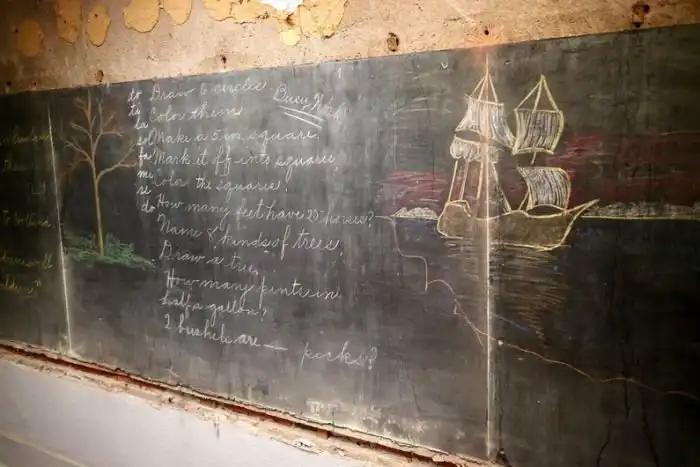 Busy Work
Draw 6 circles
Color them
la Make a 5 in. square.
Mark it off into squares
fa Color the squares.
do How many feet have 20 horses?
Name 8 kinds of trees.
Draw a tree.
How many pints in
half a gallon?
2 bushels are — pecks?
To Scotland